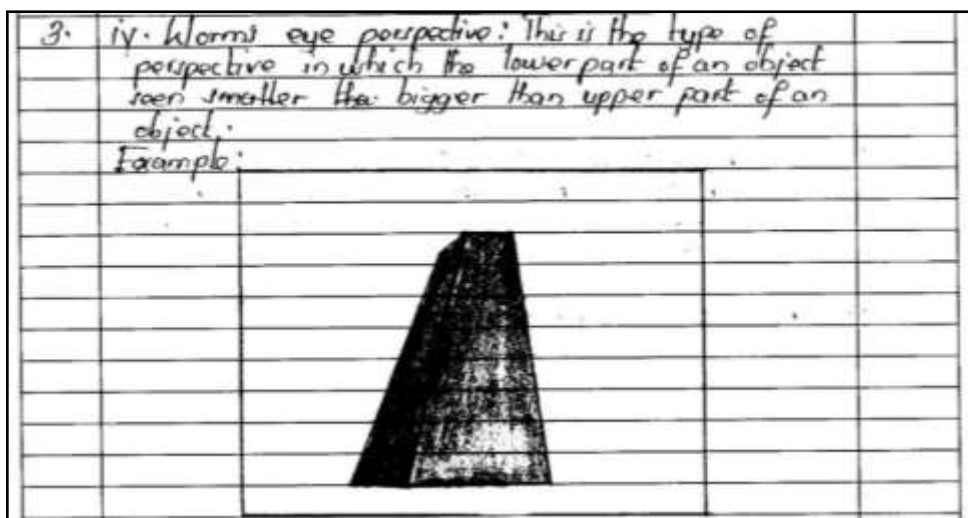 3. iv. Worms eye perspective: This is the type of
perspective in which the lower part of an object
seen smaller the bigger than upper part of an
object.
Example: